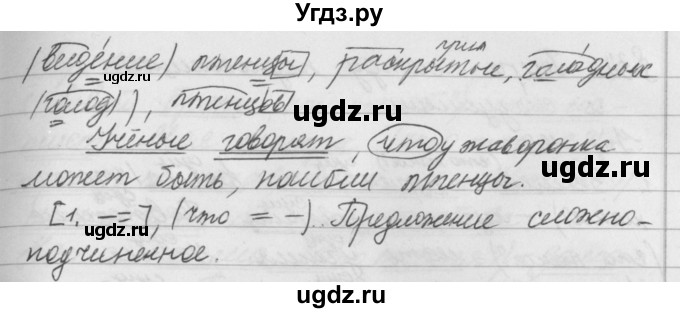 Угдз.ру
(видение) птенцы, раскрытые, голодных
прил
(голод)), птенцов
Учёные говорят, что у жаворонка
может быть, погибли птенцы.
[1. — =], (что = —). Предложение сложно-
подчиненное.
ugdz.ru
ugdz.ru
ugdz.ru
ugdz.ru
ugdz.ru
ugdz.ru
ugdz.ru